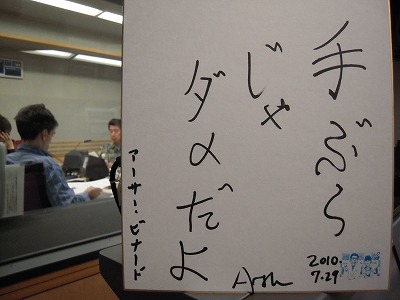 手ぶら
じゃ
ダメだよ
アーサー・ビナード
2010.
7.29